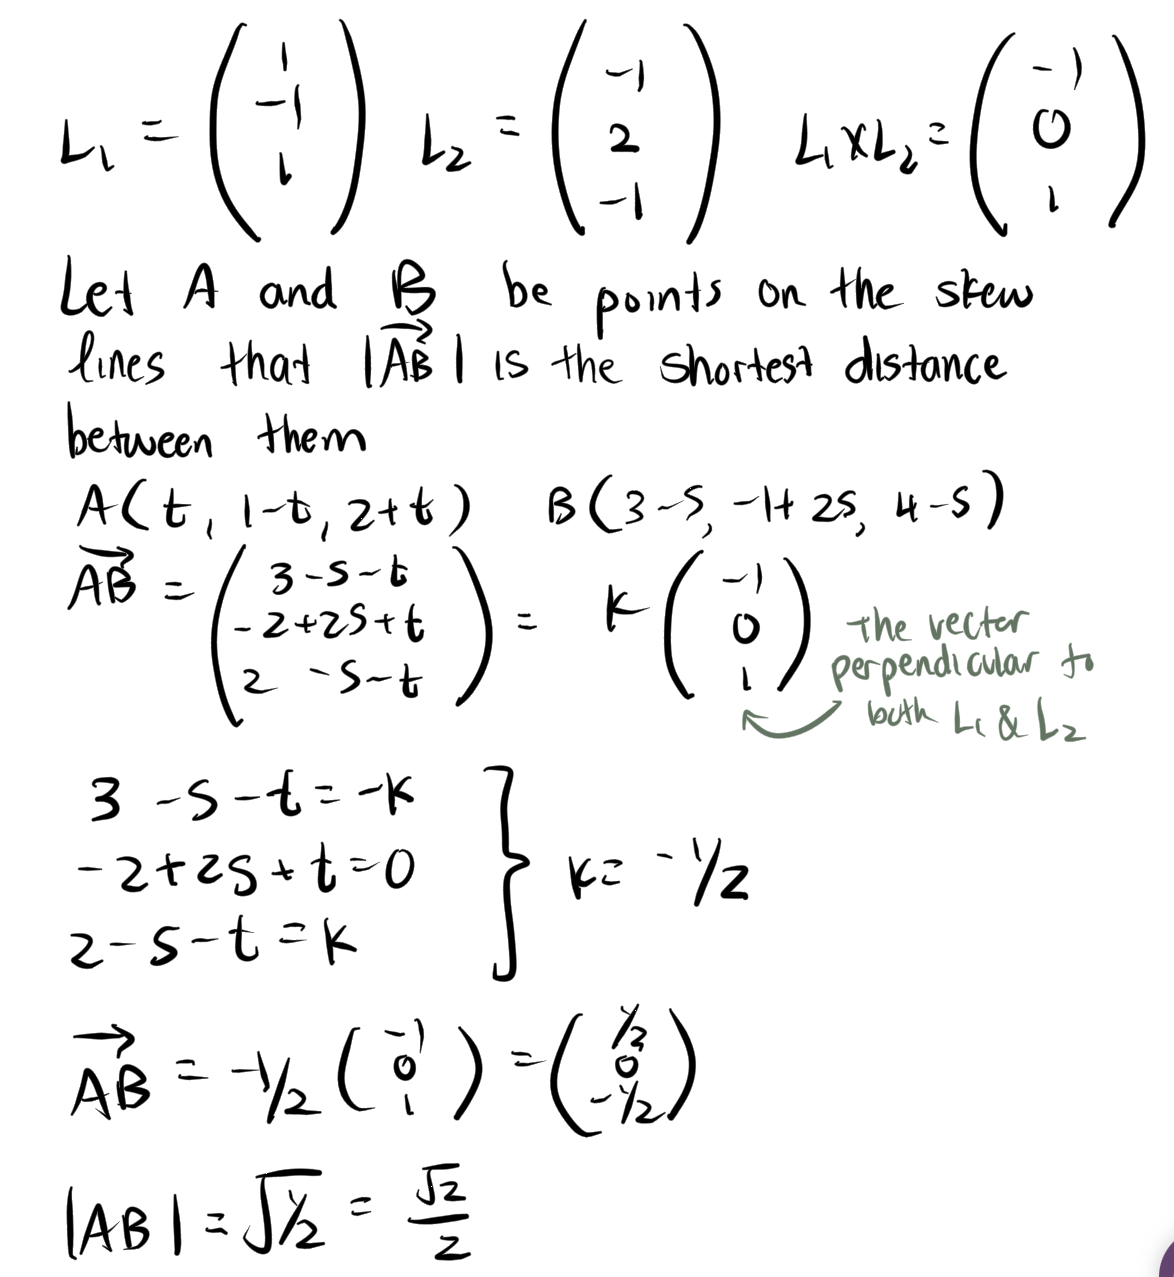 L₁ = (1 -1 1) L₂ = (-1 2 -1) L₁×L₂ = (-1 0 1)
Let A and B be points on the skew
lines that |AB| is the shortest distance
between them
A(t, 1-t, 2+t) B(3-s, -1+2s, 4-s)
AB = (3-s-t -2+2s+t 2-s-t) = K (-1 0 1)
the vector
perpendicular to
both L₁ & L₂
3-s-t = -K
-2+2s+t=0
2-s-t = K
K = -1/2
AB = -1/2 (-1 0 1) = (1/2 0 -1/2)
|AB| = √1/2 = √2/2